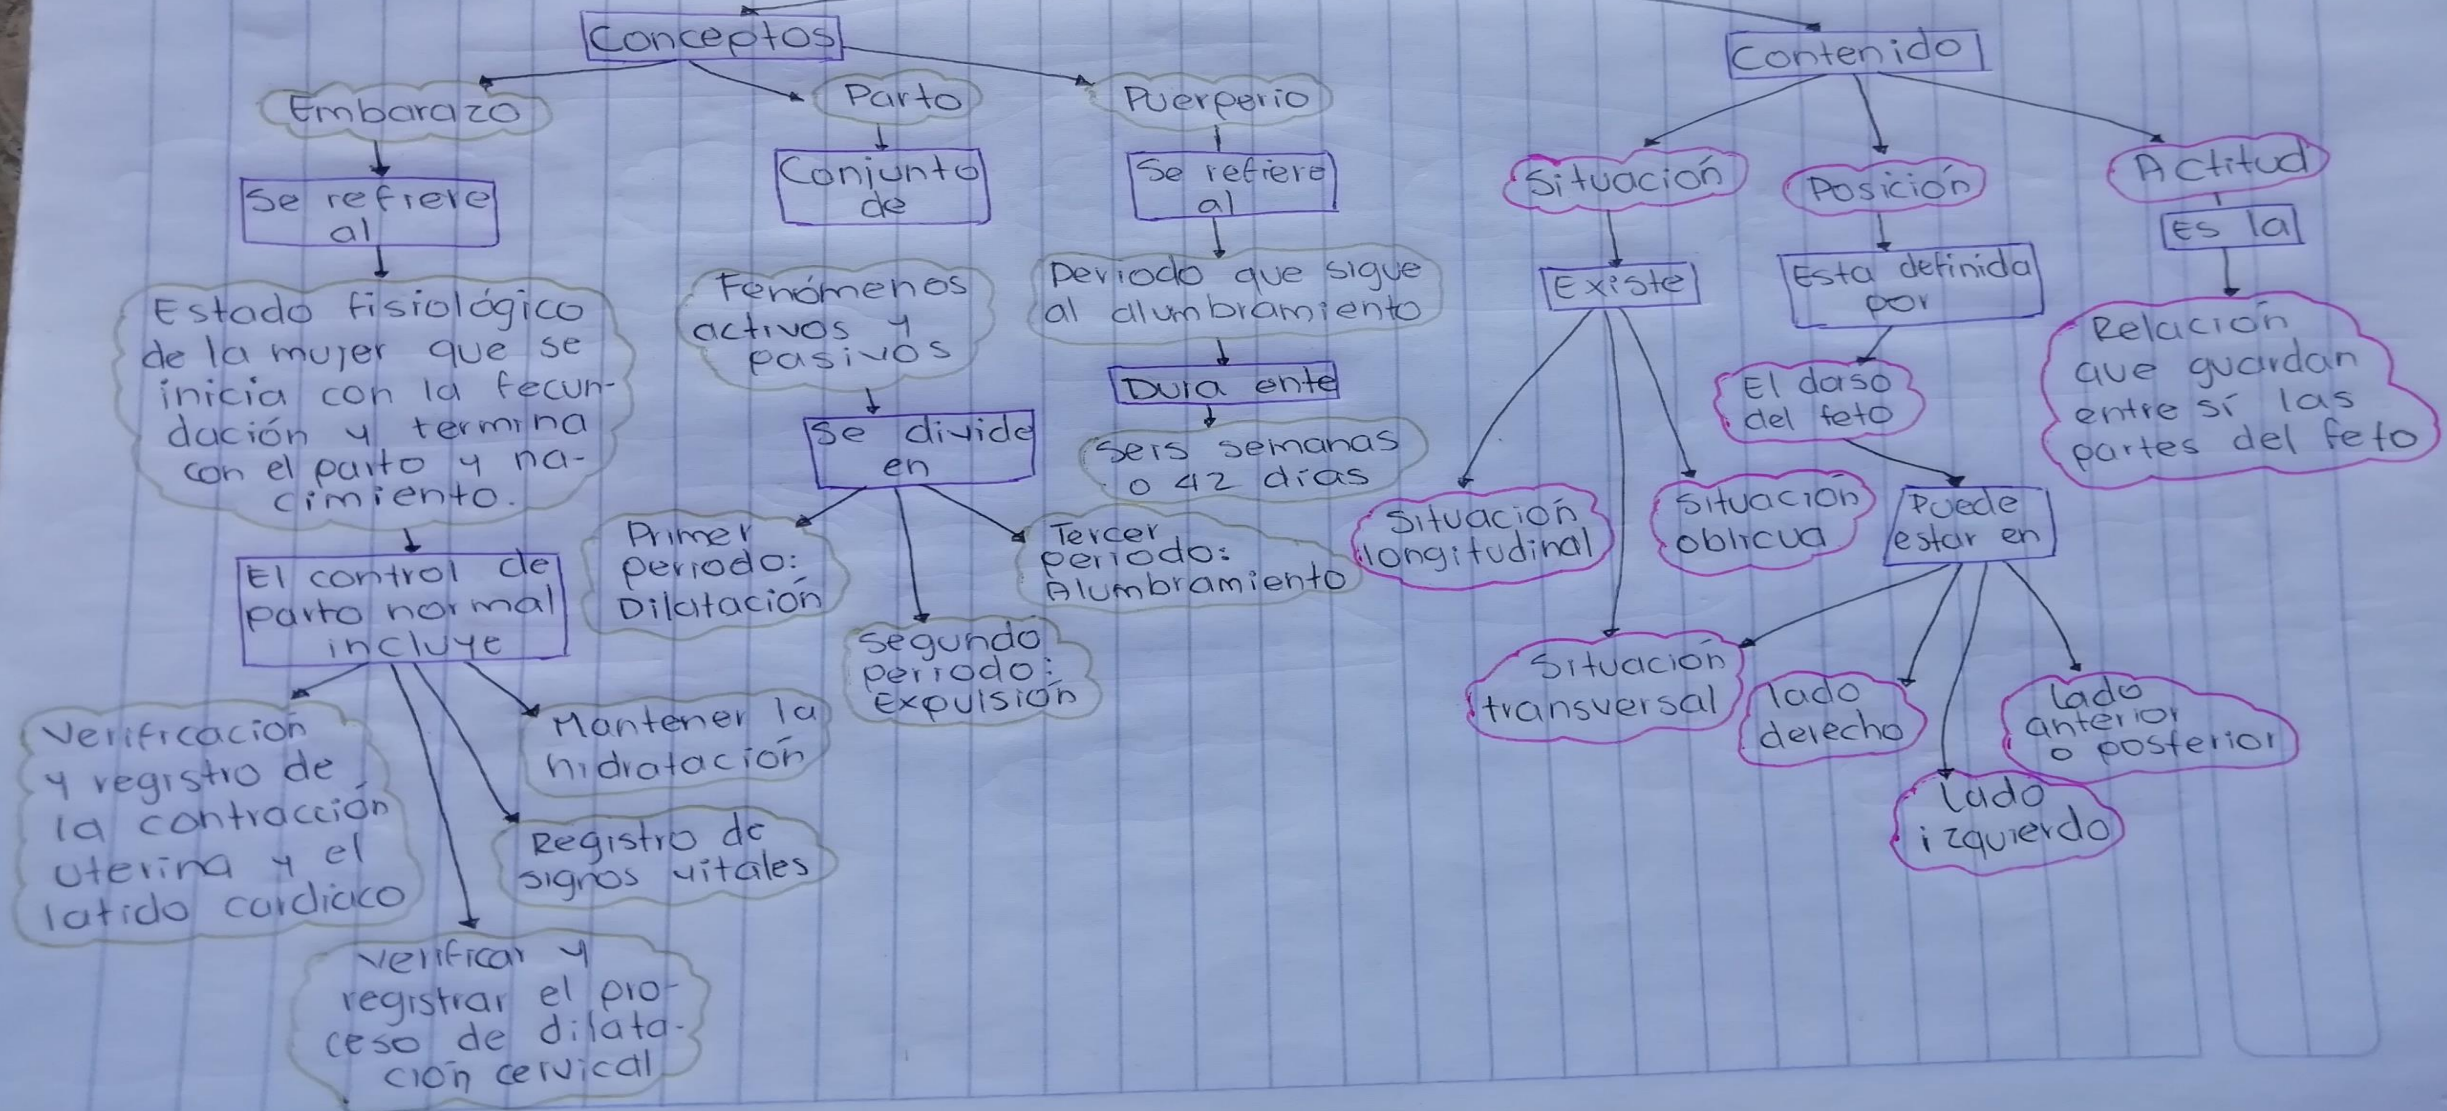 Conceptos
Embarazo
Se refiere
al
Estado fisiológico
de la mujer que se
inicia con la fecun-
dación y termina
con el parto y na-
cimiento.
El control de
parto normal
incluye
Verificación
y registro de
la contracción
uterina y el
latido cardiaco
Verificar y
registrar el pro-
ceso de dilata-
ción cervical
Registro de
signos vitales
Mantener la
hidratación
Parto
Conjunto
de
Fenómenos
activos y
pasivos
Se divide
en
Primer
periodo:
Dilatación
Segundo
periodo:
Expulsión
Tercer
periodo:
Alumbramiento
Puerperio
Se refiere
al
Periodo que sigue
al alumbramiento
Dura ente
Seis semanas
o 42 días
Contenido
Situación
Existe
Situación
longitudinal
Situación
transversal
Situación
oblicua
Posición
Esta definida
por
El daso
del feto
Puede
estar en
lado
derecho
lado
izquierdo
lado
anterior
o posterior
Actitud
Es la
Relación
que guardan
entre sí las
partes del feto